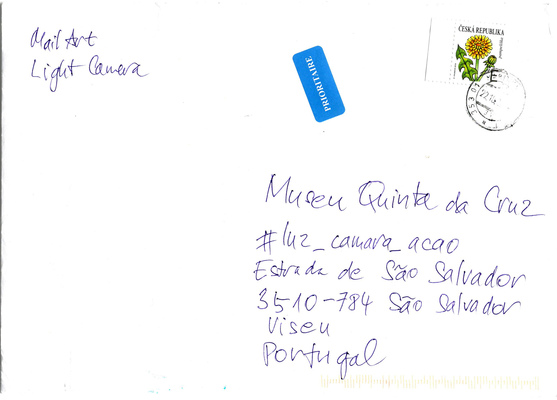 Mail Art
Light Camera
PRIORITAIRE
ČESKÁ REPUBLIKA
Museu Quinta da Cruz
#luz_camara_acao
Estrada de São Salvador
3510-784 São Salvador
Viseu
Portugal